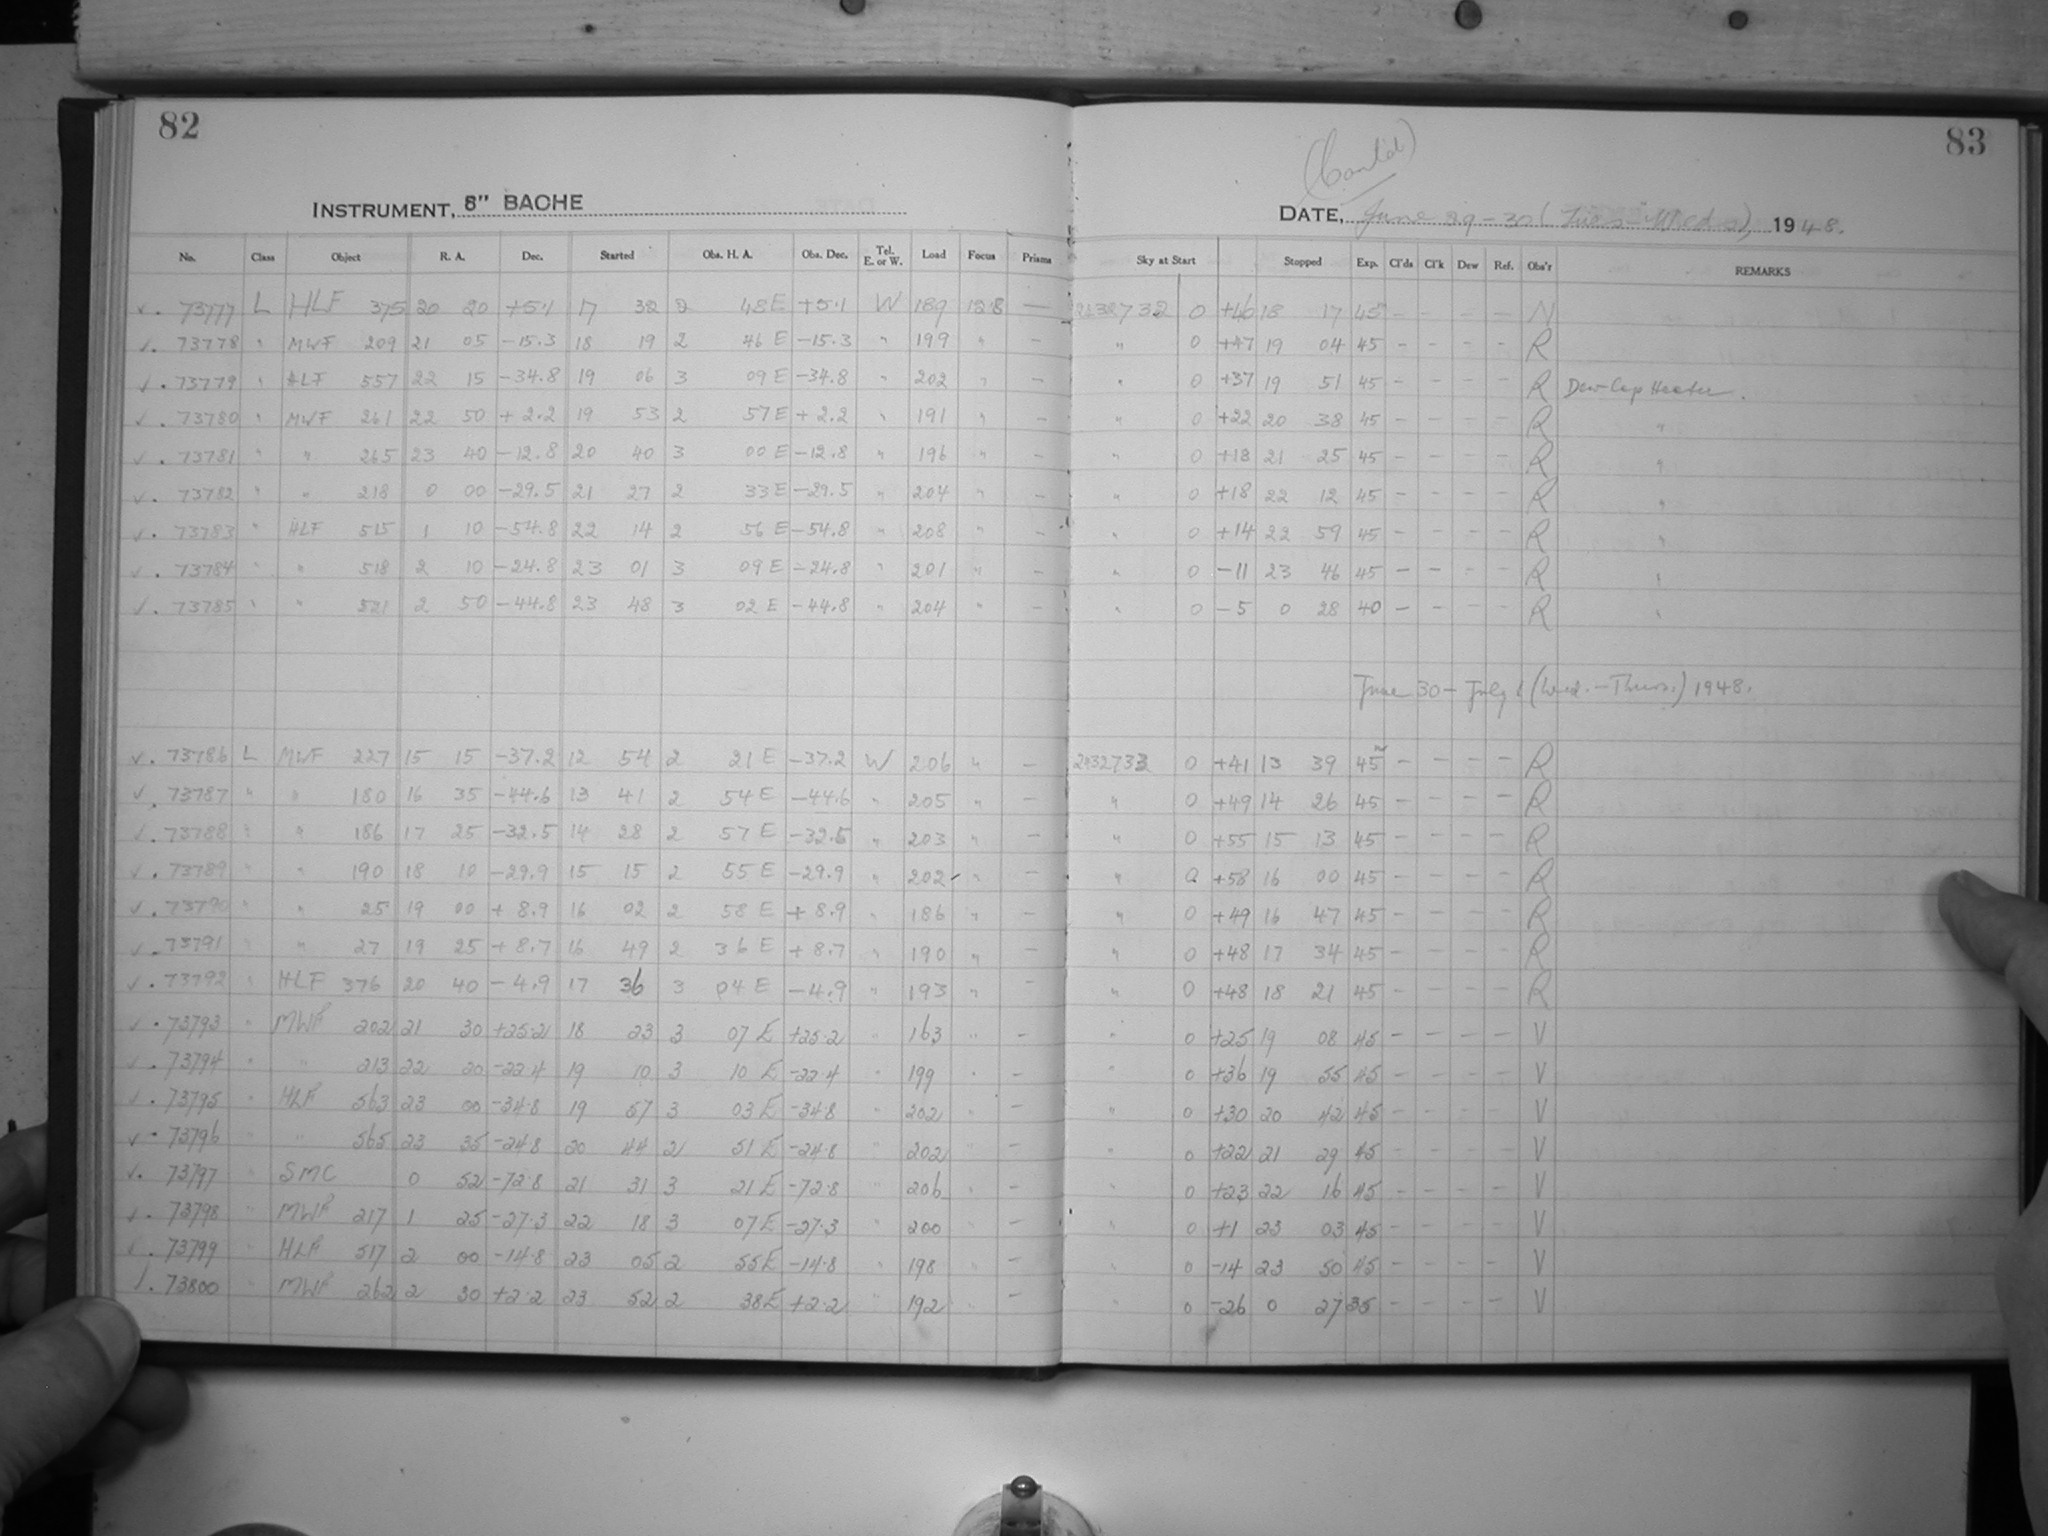 82
INSTRUMENT, 8" BACHE
No. Class Object R. A. Dec. Started Obs. H. A. Obs. Dec. Tel. E. or W. Load Focus Prisms
(Cont'd)
83
DATE, June 29-30 (Tues-Weds), 1948.
Sky at Start Stopped Exp. Cl'ds Cl'k Dew Ref. Obs'r REMARKS
√. 73777 L HLF 375 20 20 +5.1 17 32 2 48 E +5.1 W 189 12.8 — 2432732 0 +46 18 17 45 - - - - N
√. 73778 " MWF 209 21 05 -15.3 18 19 2 46 E -15.3 " 199 " - " 0 +47 19 04 45 - - - - R
√. 73779 " HLF 557 22 15 -34.8 19 06 3 09 E -34.8 " 202 " - " 0 +37 19 51 45 - - - - R Dew Cap Heater.
√. 73780 " MWF 261 22 50 +2.2 19 53 2 57 E +2.2 " 191 " - " 0 +22 20 38 45 - - - - R "
√. 73781 " " 265 23 40 -12.8 20 40 3 00 E -12.8 " 196 " - " 0 +18 21 25 45 - - - - R "
√. 73782 " " 218 0 00 -29.5 21 27 2 33 E -29.5 " 204 " - " 0 +18 22 12 45 - - - - R "
√. 73783 " HLF 515 1 10 -54.8 22 14 2 56 E -54.8 " 208 " - " 0 +14 22 59 45 - - - - R "
√. 73784 " " 518 2 10 -24.8 23 01 3 09 E -24.8 " 201 " - " 0 -11 23 46 45 - - - - R "
√. 73785 " " 521 2 50 -44.8 23 48 3 02 E -44.8 " 204 " - " 0 -5 0 28 40 - - - - R "
June 30 - July 1 (Wed. - Thurs.) 1948.
√. 73786 L MWF 227 15 15 -37.2 12 54 2 21 E -37.2 W 206 " - 2432733 0 +41 13 39 45 - - - - R
√. 73787 " " 180 16 35 -44.6 13 41 2 54 E -44.6 " 205 " - " 0 +49 14 26 45 - - - - R
√. 73788 " " 186 17 25 -32.5 14 28 2 57 E -32.5 " 203 " - " 0 +55 15 13 45 - - - - R
√. 73789 " " 190 18 10 -29.9 15 15 2 55 E -29.9 " 202 " - " 0 +58 16 00 45 - - - - R
√. 73790 " " 25 19 00 +8.9 16 02 2 58 E +8.9 " 186 " - " 0 +49 16 47 45 - - - - R
√. 73791 " " 27 19 25 +8.7 16 49 2 36 E +8.7 " 190 " - " 0 +48 17 34 45 - - - - R
√. 73792 " HLF 376 20 40 -4.9 17 36 3 04 E -4.9 " 193 " - " 0 +48 18 21 45 - - - - R
√. 73793 " MWF 202 21 30 +25.2 18 23 3 07 E +25.2 " 163 " - " 0 +25 19 08 45 - - - - V
√. 73794 " " 213 22 20 -22.4 19 10 3 10 E -22.4 " 199 " - " 0 +36 19 55 45 - - - - V
√. 73795 " HLF 563 23 00 -34.8 19 57 3 03 E -34.8 " 202 " - " 0 +30 20 42 45 - - - - V
√. 73796 " " 565 23 35 -24.8 20 44 2 51 E -24.8 " 202 " - " 0 +22 21 29 45 - - - - V
√. 73797 " SMC 0 52 -72.8 21 31 3 21 E -72.8 " 206 " - " 0 +23 22 16 45 - - - - V
√. 73798 " MWF 217 1 25 -27.3 22 18 3 07 E -27.3 " 200 " - " 0 +1 23 03 45 - - - - V
√. 73799 " HLF 517 2 00 -14.8 23 05 2 55 E -14.8 " 198 " - " 0 -14 23 50 45 - - - - V
√. 73800 " MWF 262 2 30 +2.2 23 52 2 38 E +2.2 " 192 " - " 0 -26 0 27 35 - - - - V